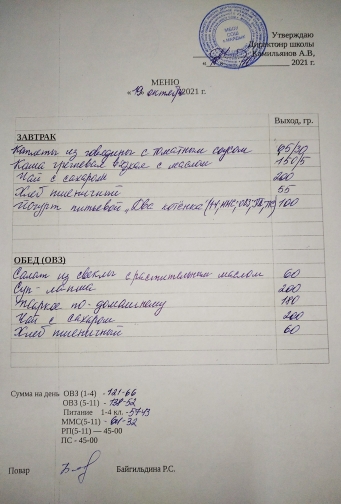 Утверждаю
Директор школы
Камильянов А.В,
2021 г.
МЕНЮ
« 13 » октября 2021 г.
Выход, гр.
ЗАВТРАК
Котлеты из говядины с томатным соусом 95/30
Каша гречневая вязкая с маслом 150/5
Чай с сахаром 200
Хлеб пшеничный 55
Йогурт питьевой „Два котенка" 100
ОБЕД (ОВЗ)
Салат из свеклы с растительным маслом 60
Суп-лапша 200
Жаркое по-домашнему 180
Чай с сахаром 200
Хлеб пшеничный 60
Сумма на день ОВЗ (1-4) - 121-66
ОВЗ (5-11) - -52
Питание 1-4 кл. -57-43
ММС(5-11) - -32
РП(5-11) — 45-00
ПС - 45-00
Повар Байгильдина Р.С.